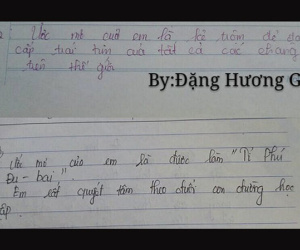 Ước mơ của em là kẻ trộm để
cắp trái tim của tất cả các
trên thế giới
By:Đặng Hương G
Ước mơ của em là được làm "Tỉ Phú
Đu - bai".
Em rất quyết tâm theo đuổi con đường học
tập.